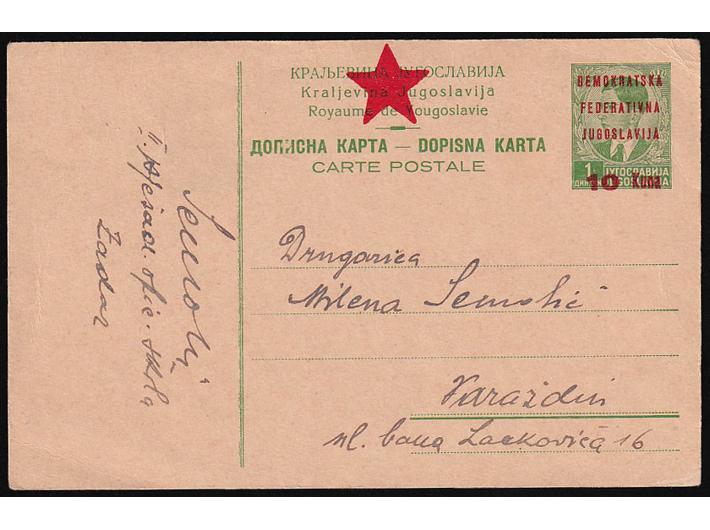 КРАЉЕВИНА ЈУГОСЛАВИЈА
Kraljevina Jugoslavija
Royaume de Yougoslavie
ДОПИСНА КАРТА — DOPISNA KARTA
CARTE POSTALE
DEMOKRATSKA
FEDERATIVNA
JUGOSLAVIJA
1 ЈУГОСЛАВИЈА
10 Kuna
Drugarica
Milena Semolić
Varaždin
ul. bana Lackovića 16
II. pješad. ofic. škola
Zadar